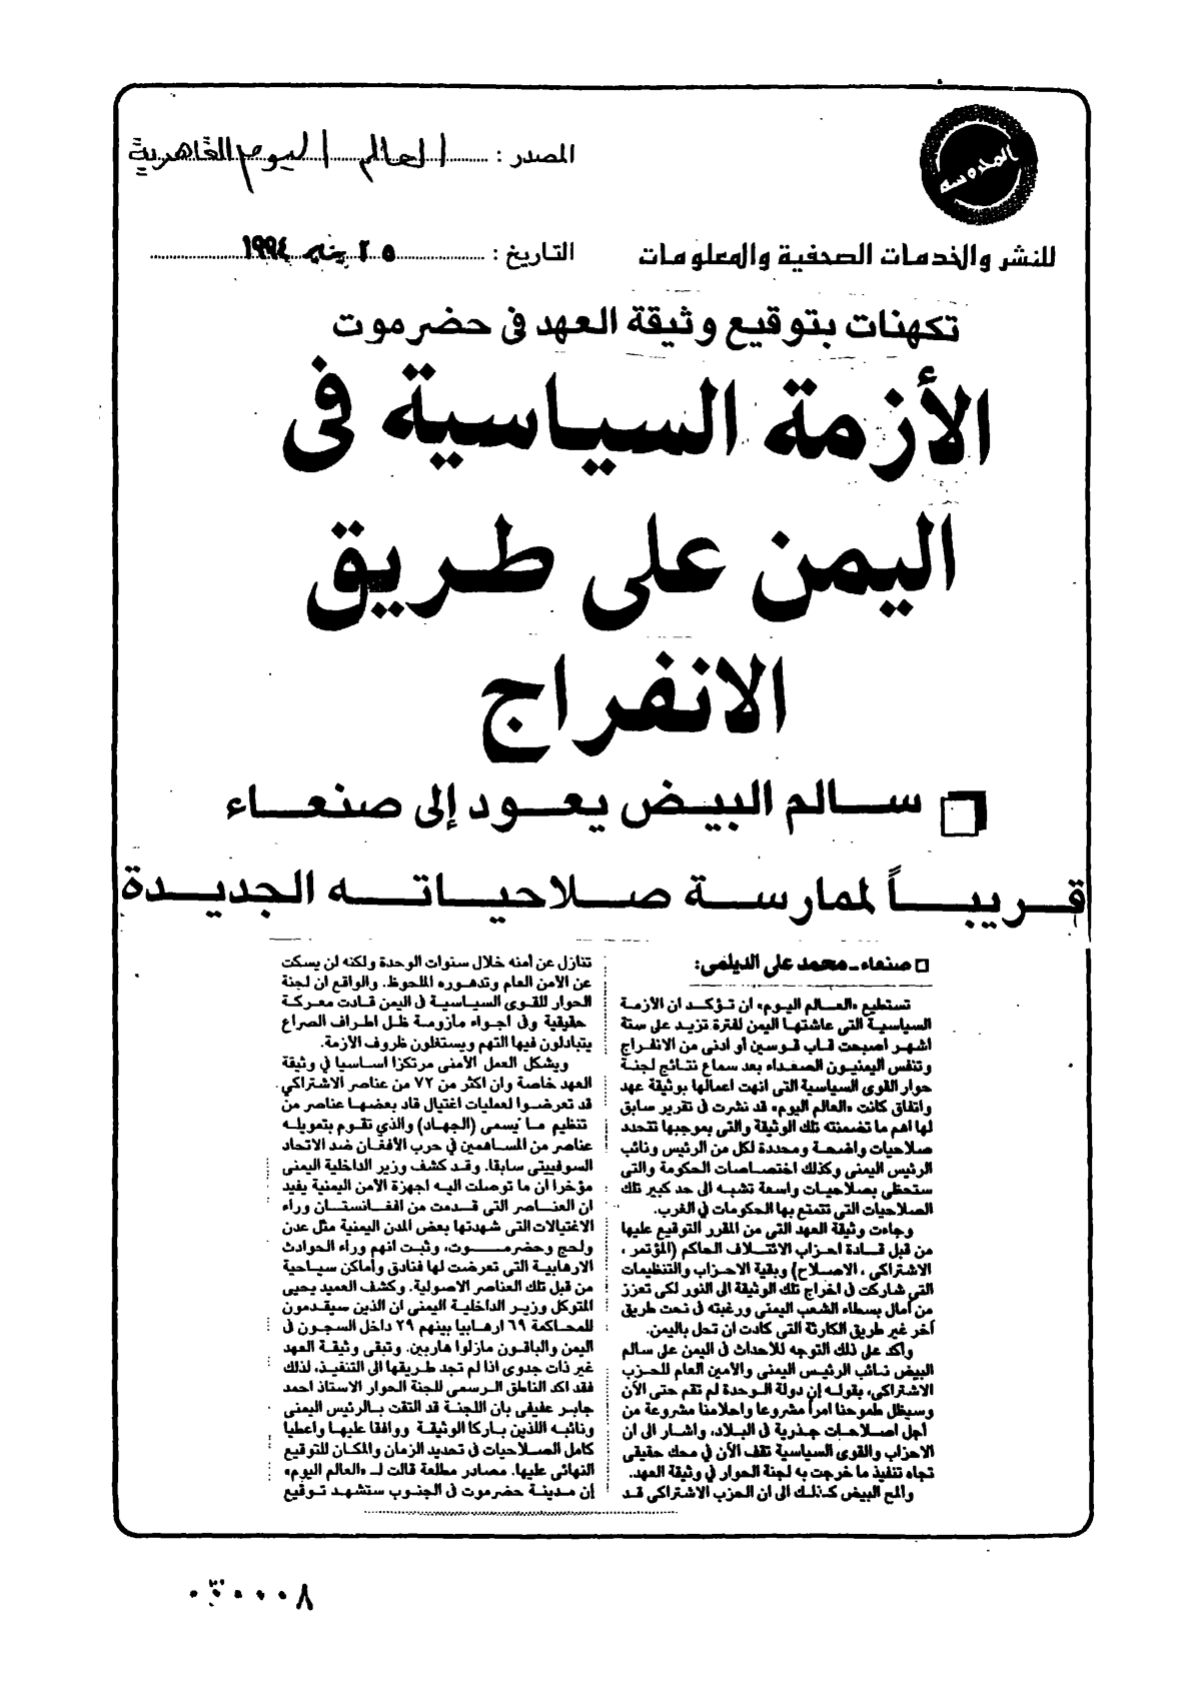 المحروسه
المصدر : العالم اليوم القاهرية
للنشر والخدمات الصحفية والمعلومات
التاريخ : ٢٥ يناير ١٩٩٤
تكهنات بتوقيع وثيقة العهد فى حضرموت
الأزمة السياسية فى
اليمن على طريق
الانفراج
سالم البيض يعود إلى صنعاء
قريباً لممارسة صلاحياته الجديدة
صنعاء ـ محمد على الديلمى:
تستطيع «العالم اليوم» ان تؤكد ان الازمة
السياسية التى عاشتها اليمن لفترة تزيد على ستة
اشهر اصبحت قاب قوسين أو ادنى من الانفراج
وتنفس اليمنيون الصعداء بعد سماع نتائج لجنة
حوار القوى السياسية التى انهت اعمالها بوثيقة عهد
واتفاق كانت «العالم اليوم» قد نشرت فى تقرير سابق
لها اهم ما تضمنته تلك الوثيقة والتى بموجبها تتحدد
صلاحيات واضحة ومحددة لكل من الرئيس ونائب
الرئيس اليمنى وكذلك اختصاصات الحكومة والتى
ستحظى بصلاحيات واسعة تشبه الى حد كبير تلك
الصلاحيات التى تتمتع بها الحكومات فى الغرب.
وجاءت وثيقة العهد التى من المقرر التوقيع عليها
من قبل قادة احزاب الائتلاف الحاكم (المؤتمر ،
الاشتراكى ، الاصلاح) وبقية الاحزاب والتنظيمات
التى شاركت فى اخراج تلك الوثيقة الى النور لكى تعزز
من آمال بسطاء الشعب اليمنى ورغبته فى نحت طريق
آخر غير طريق الكارثة التى كادت ان تحل باليمن.
وأكد على ذلك التوجه للأحداث فى اليمن على سالم
البيض نائب الرئيس اليمنى والأمين العام للحزب
الاشتراكى، بقوله إن دولة الوحدة لم تقم حتى الآن
وسيظل طموحنا امراً مشروعا واحلامنا مشروعة من
أجل اصلاحات جذرية فى البلاد، واشار الى ان
الاحزاب والقوى السياسية تقف الآن فى محك حقيقى
تجاه تنفيذ ما خرجت به لجنة الحوار فى وثيقة العهد.
وألمح البيض كذلك الى ان الحزب الاشتراكى قد
تنازل عن أمنه خلال سنوات الوحدة ولكنه لن يسكت
عن الأمن العام وتدهوره الملحوظ. والواقع ان لجنة
الحوار للقوى السياسية فى اليمن قادت معركة
حقيقية وفى اجواء مازومة ظل اطراف الصراع
يتبادلون فيها التهم ويستغلون ظروف الأزمة.
ويشكل العمل الأمنى مرتكزا اساسيا فى وثيقة
العهد خاصة وان اكثر من ٧٢ من عناصر الاشتراكى
قد تعرضوا لعمليات اغتيال قاد بعضها عناصر من
تنظيم ما يسمى (الجهاد) والذى تقوم بتمويله
عناصر من المساهمين فى حرب الأفغان ضد الاتحاد
السوفييتى سابقا. وقد كشف وزير الداخلية اليمنى
مؤخرا ان ما توصلت اليه اجهزة الامن اليمنية يفيد
ان العناصر التى قدمت من افغانستان وراء
الاغتيالات التى شهدتها بعض المدن اليمنية مثل عدن
ولحج وحضرموت، وثبت انهم وراء الحوادث
الارهابية التى تعرضت لها فنادق وأماكن سياحية
من قبل تلك العناصر الاصولية. وكشف العميد يحيى
المتوكل وزير الداخلية اليمنى ان الذين سيقدمون
للمحاكمة ٦٩ ارهابيا بينهم ٢٩ داخل السجون فى
اليمن والباقون مازلوا هاربين. وتبقى وثيقة العهد
غير ذات جدوى اذا لم تجد طريقها الى التنفيذ، لذلك
فقد اكد الناطق الرسمى للجنة الحوار الاستاذ احمد
جابر عفيفى بان اللجنة قد التقت بالرئيس اليمنى
ونائبه اللذين باركا الوثيقة ووافقا عليها واعطيا
كامل الصلاحيات فى تحديد الزمان والمكان للتوقيع
النهائى عليها. مصادر مطلعة قالت لـ «العالم اليوم»
إن مدينة حضرموت فى الجنوب ستشهد توقيع